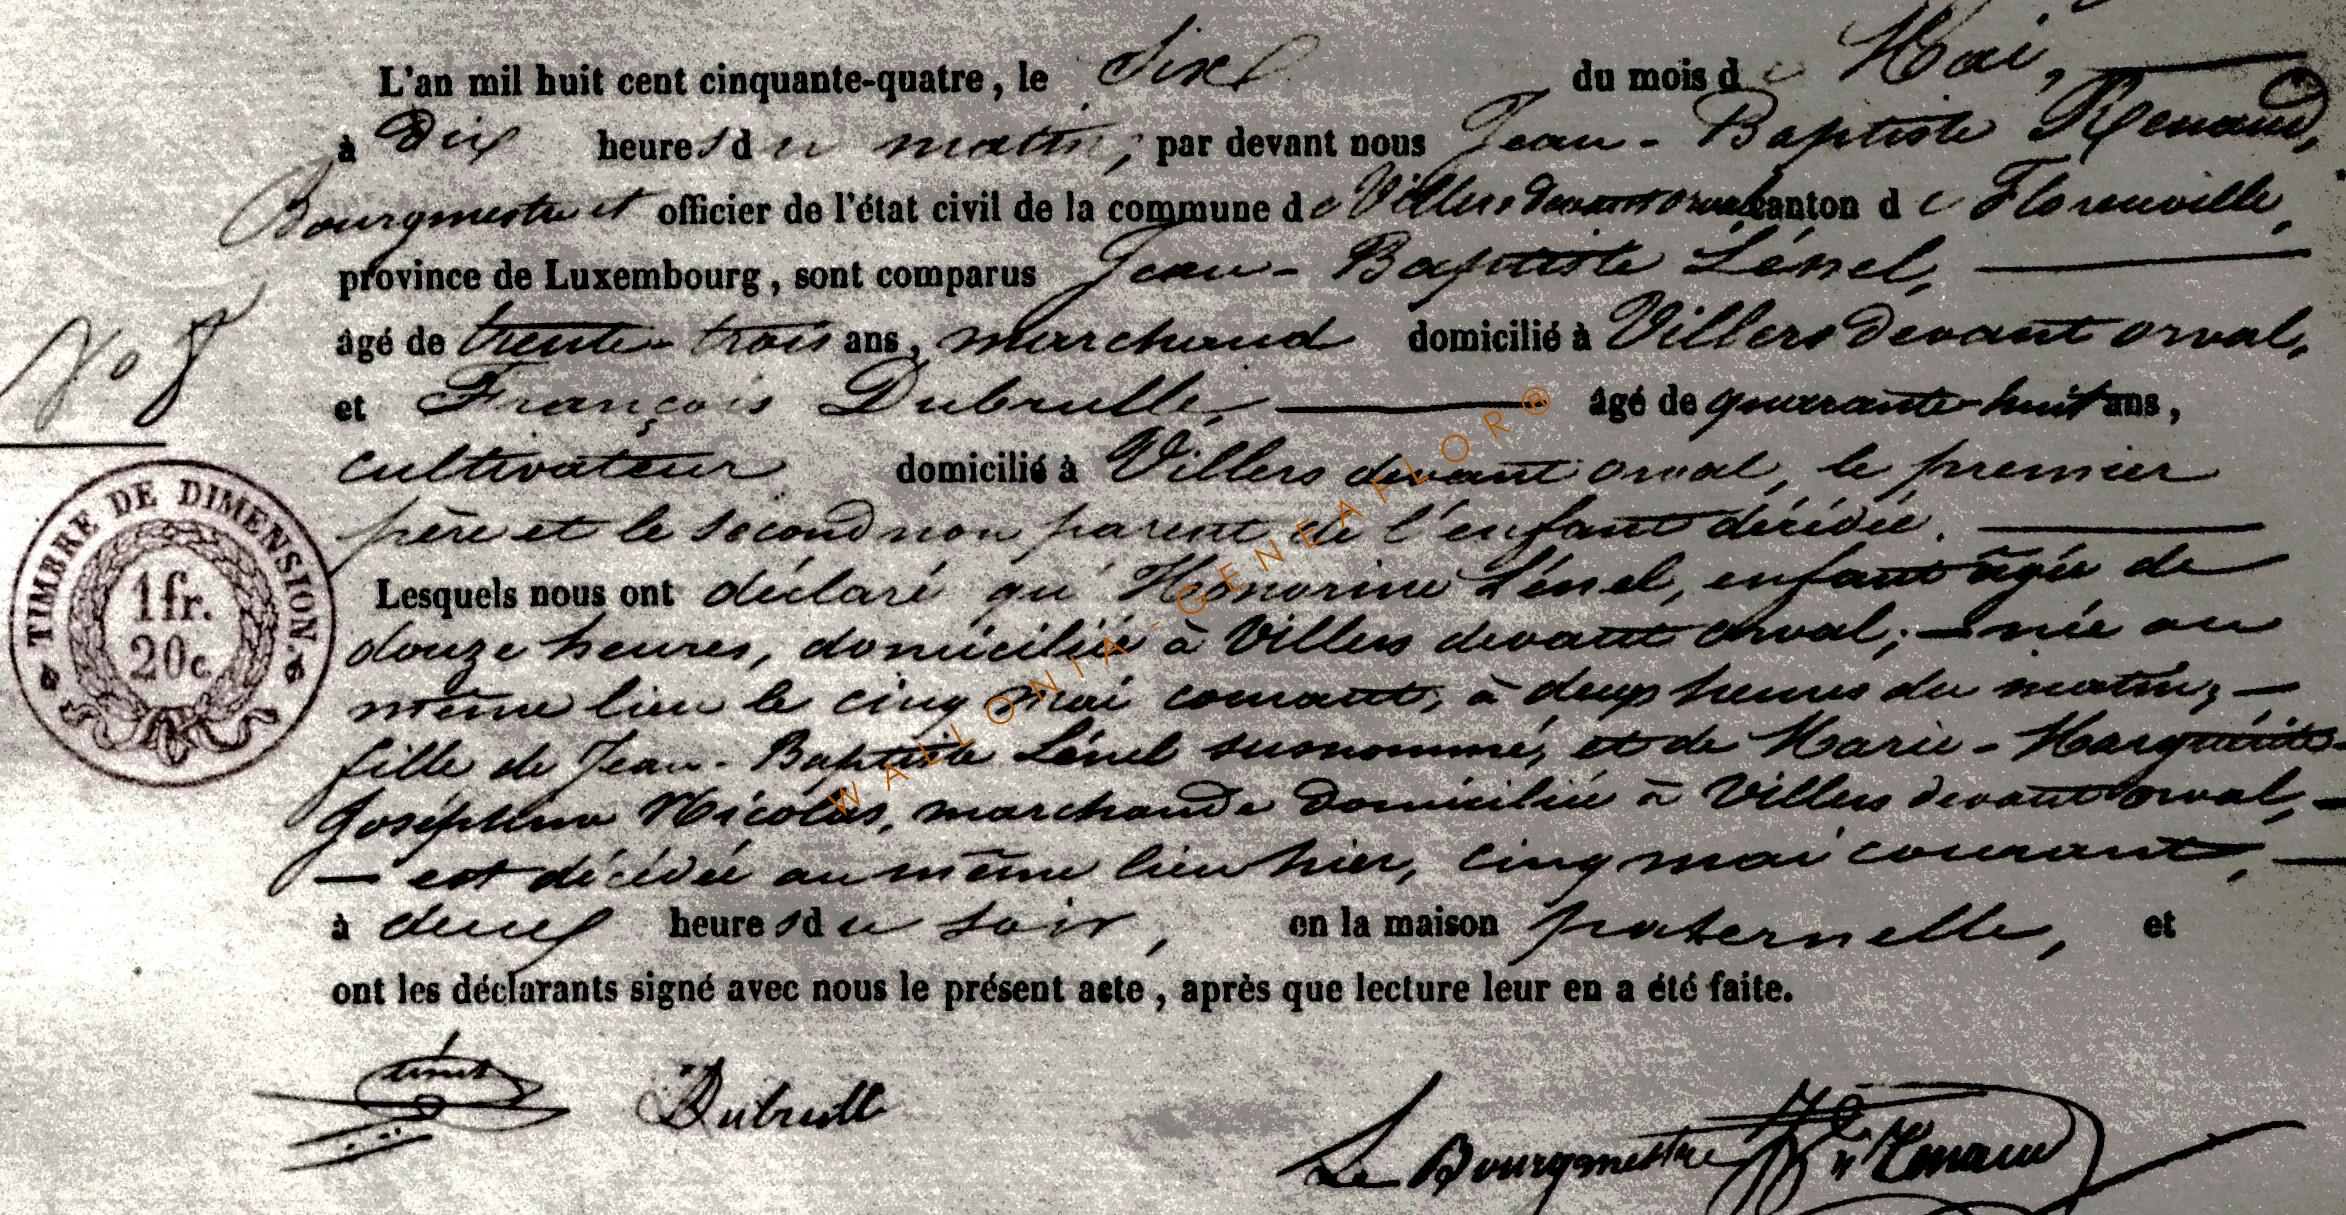 L'an mil huit cent cinquante-quatre, le Six du mois de Mai,
à Dix heures du matin, par devant nous Jean-Baptiste Renaud,
Bourgmestre et officier de l'état civil de la commune de Villers devant orval canton de Florenville,
province de Luxembourg, sont comparus Jean-Baptiste Lénel,
âgé de trente-trois ans, marchand domicilié à Villers devant orval,
No 8
et François Dubrulle, âgé de quarante-huit ans,
cultivateur domicilié à Villers devant orval, le premier
père et le second non parent de l'enfant décédée.
TIMBRE DE DIMENSION.
1fr.
20c
Lesquels nous ont déclaré qu'Honorine Lénel, enfant âgée de
douze heures, domiciliée à Villers devant orval; née au
même lieu le cinq mai courant, à deux heures du matin,
fille de Jean-Baptiste Lénel susnommé, et de Marie-Marguérite-
Joséphine Nicolas, marchande domiciliée à Villers devant orval,
est décédée au même lieu hier, cinq mai courant,
à deux heures du soir, en la maison paternelle, et
ont les déclarants signé avec nous le présent acte, après que lecture leur en a été faite.
Dubrulle
Le Bourgmestre Renaud
WALLONIA-GENEAFLOR®